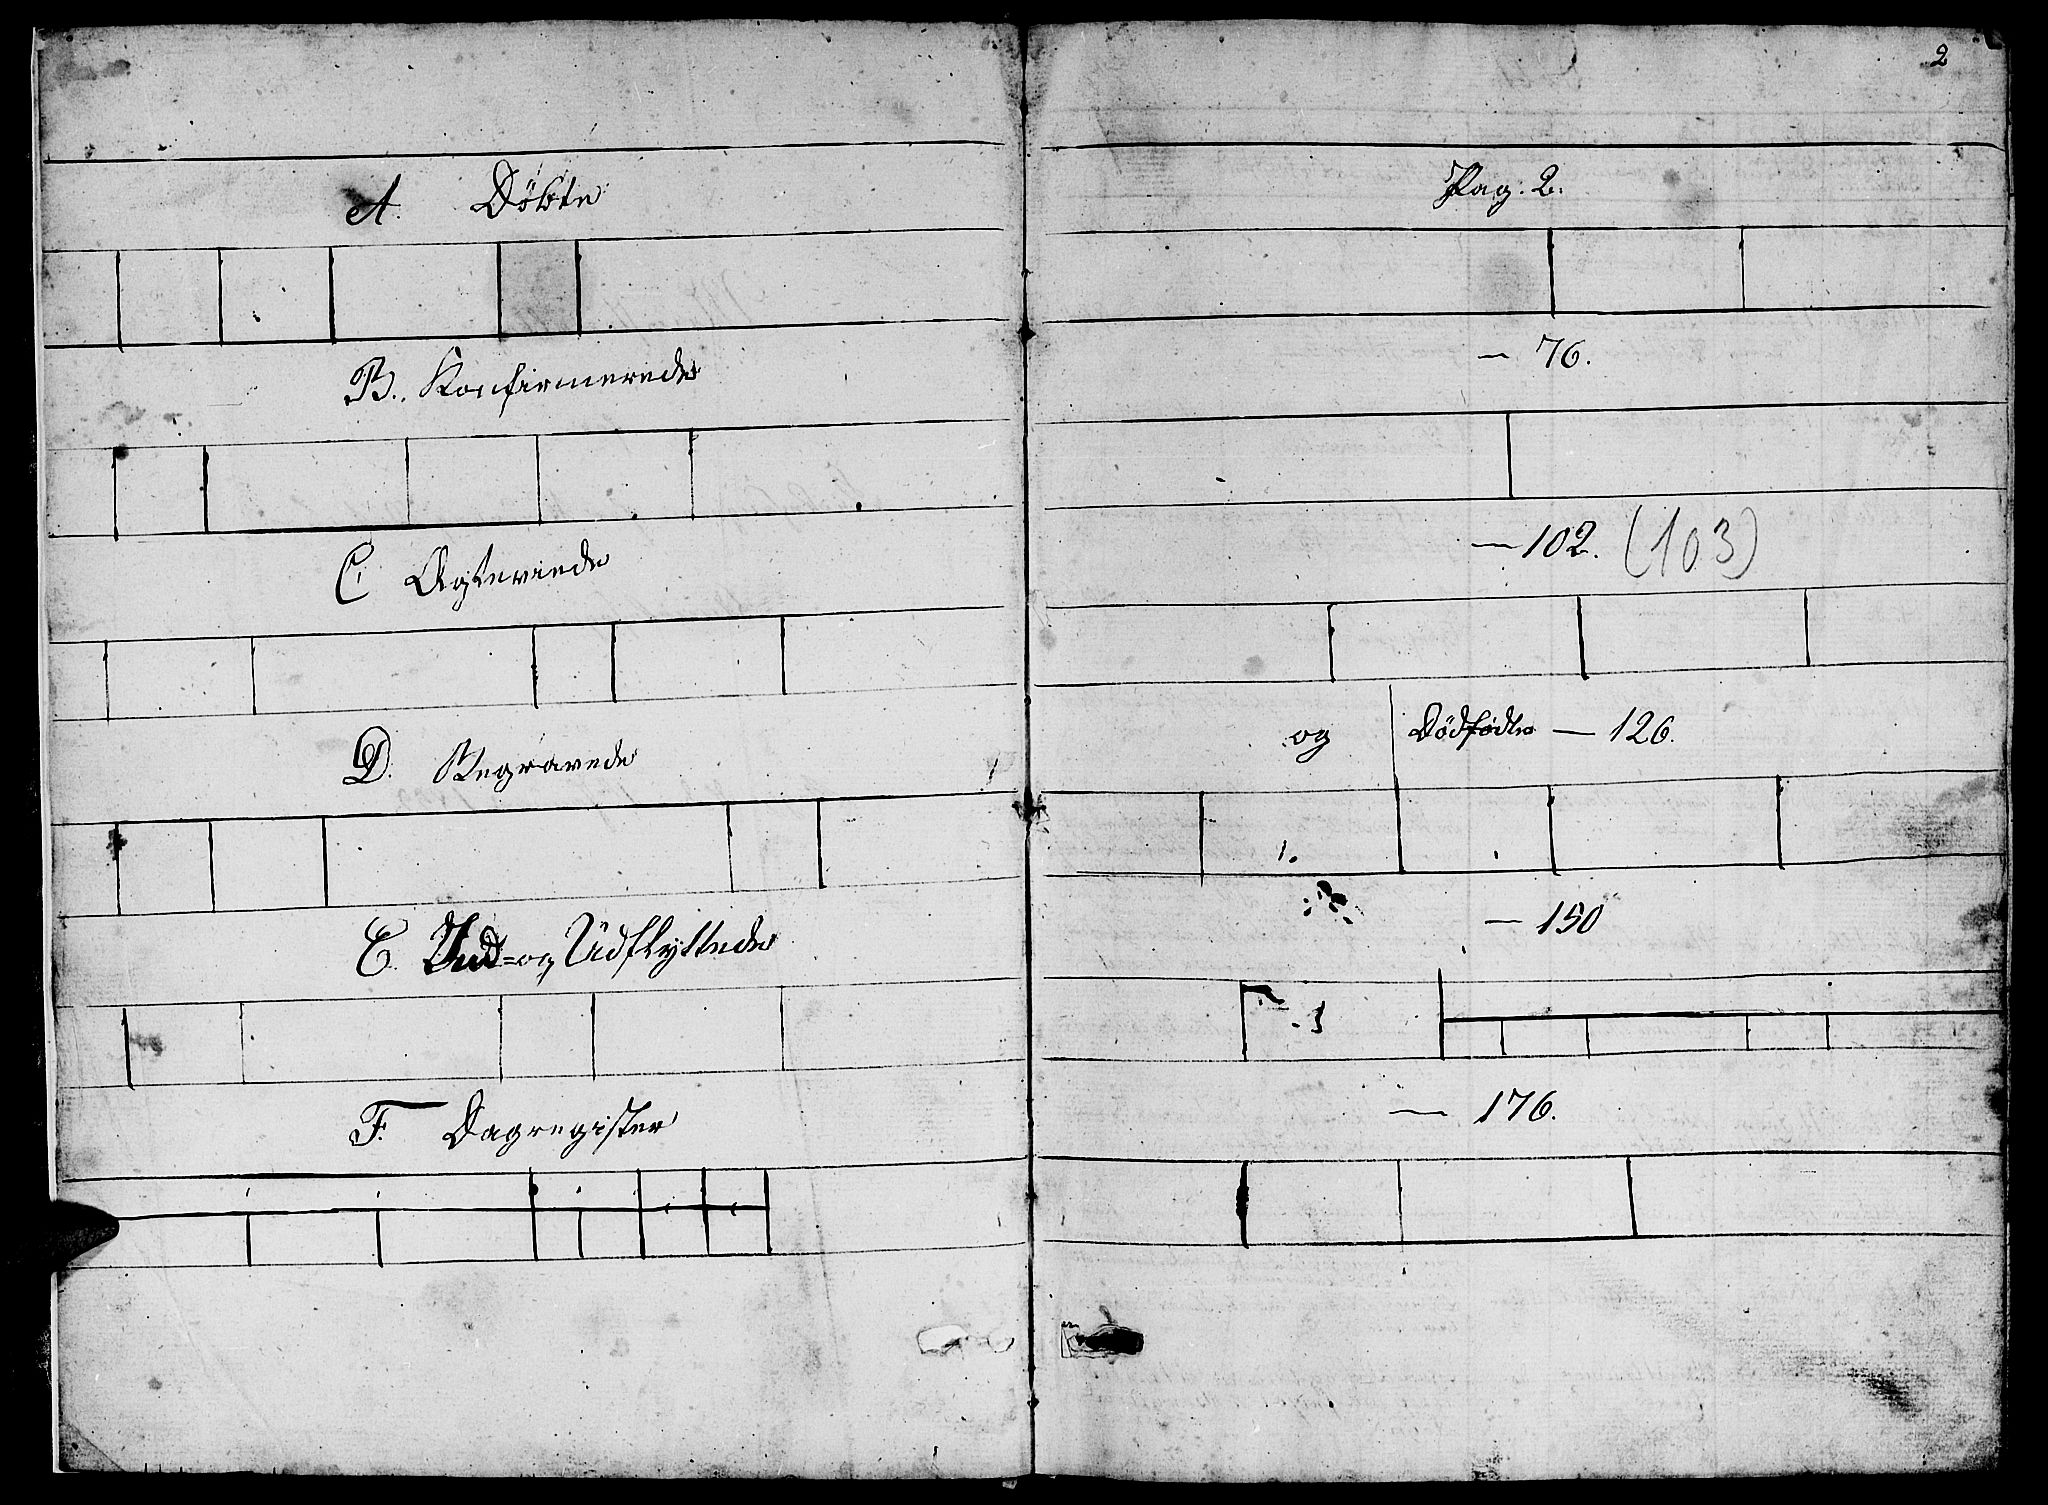 2
A. Döbte Pag. 2.
B. Konfirmerede — 76.
C. Ægteviede — 102. (103)
D. Begravede og Dödfödte — 126.
E. Ind- og Udflyttede — 150
F. Dagregister — 176.